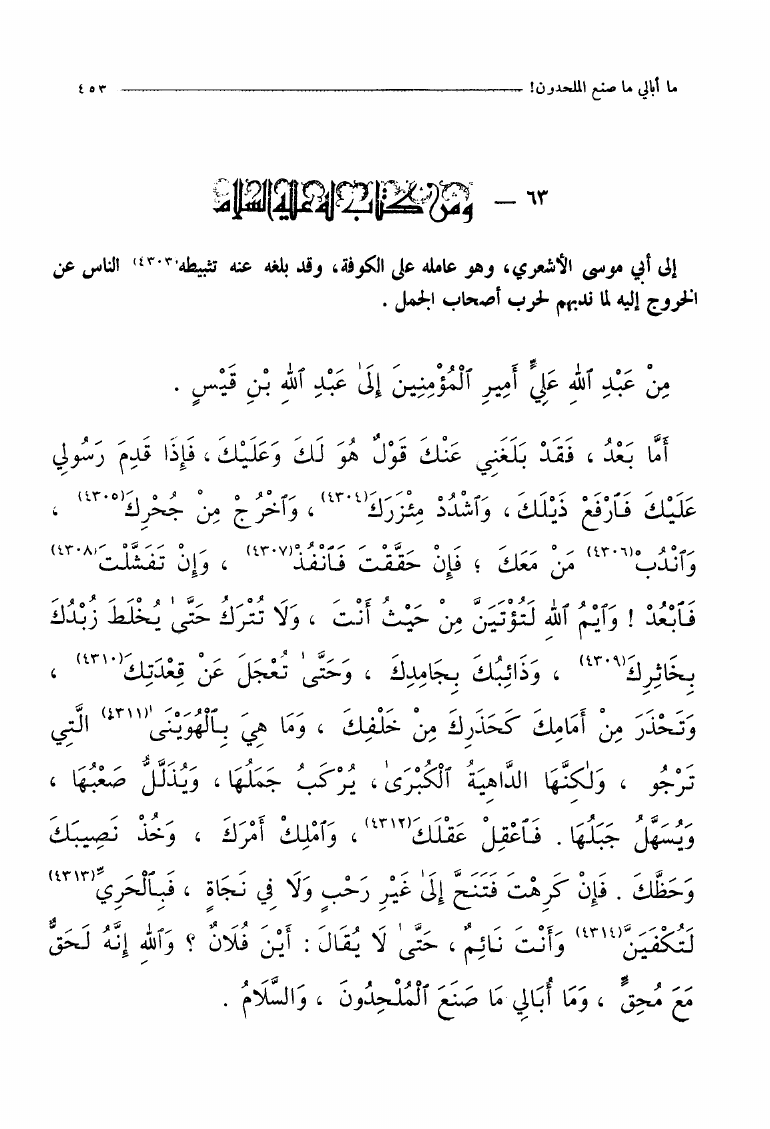 ما أبالي ما صنع الملحدون! ٤٥٣
٦٣ – ومن كتاب له عليه السلام
إلى أبي موسى الأشعري، وهو عامله على الكوفة، وقد بلغه عنه تثبيطه(٤٣٠٣) الناس عن
الخروج إليه لما ندبهم لحرب أصحاب الجمل .
مِنْ عَبْدِ ٱللهِ عَلِيٍّ أَمِيرِ ٱلْمُؤْمِنِينَ إِلَىٰ عَبْدِ ٱللهِ بْنِ قَيْسٍ .
أَمَّا بَعْدُ ، فَقَدْ بَلَغَنِي عَنْكَ قَوْلٌ هُوَ لَكَ وَعَلَيْكَ ، فَإِذَا قَدِمَ رَسُولِي
عَلَيْكَ فَٱرْفَعْ ذَيْلَكَ ، وَٱشْدُدْ مِئْزَرَكَ(٤٣٠٤) ، وَٱخْرُجْ مِنْ جُحْرِكَ(٤٣٠٥) ،
وَٱنْدُبْ(٤٣٠٦) مَنْ مَعَكَ ؛ فَإِنْ حَقَّقْتَ فَٱنْفُذْ(٤٣٠٧) ، وَإِنْ تَفَشَّلْتَ(٤٣٠٨)
فَٱبْعُدْ ! وَٱيْمُ ٱللهِ لَتُؤْتَيَنَّ مِنْ حَيْثُ أَنْتَ ، وَلَا تُتْرَكُ حَتَّىٰ يُخْلَطَ زُبْدُكَ
بِخَاثِرِكَ(٤٣٠٩) ، وَذَائِبُكَ بِجَامِدِكَ ، وَحَتَّىٰ تُعْجَلَ عَنْ قِعْدَتِكَ(٤٣١٠) ،
وَتَحْذَرَ مِنْ أَمَامِكَ كَحَذَرِكَ مِنْ خَلْفِكَ ، وَمَا هِيَ بِٱلْهُوَيْنَىٰ(٤٣١١) الَّتِي
تَرْجُو ، وَلٰكِنَّهَا الدَّاهِيَةُ ٱلْكُبْرَىٰ ، يُرْكَبُ جَمَلُهَا ، وَيُذَلَّلُ صَعْبُهَا ،
وَيُسَهَّلُ جَبَلُهَا . فَٱعْقِلْ عَقْلَكَ(٤٣١٢) ، وَٱمْلِكْ أَمْرَكَ ، وَخُذْ نَصِيبَكَ
وَحَظَّكَ . فَإِنْ كَرِهْتَ فَتَنَحَّ إِلَىٰ غَيْرِ رَحْبٍ وَلَا فِي نَجَاةٍ ، فَبِٱلْحَرِيِّ(٤٣١٣)
لَتُكْفَيَنَّ(٤٣١٤) وَأَنْتَ نَائِمٌ ، حَتَّىٰ لَا يُقَالَ : أَيْنَ فُلَانٌ ؟ وَٱللهِ إِنَّهُ لَحَقٌّ
مَعَ مُحِقٍّ ، وَمَا أُبَالِي مَا صَنَعَ ٱلْمُلْحِدُونَ ، وَالسَّلَامُ .